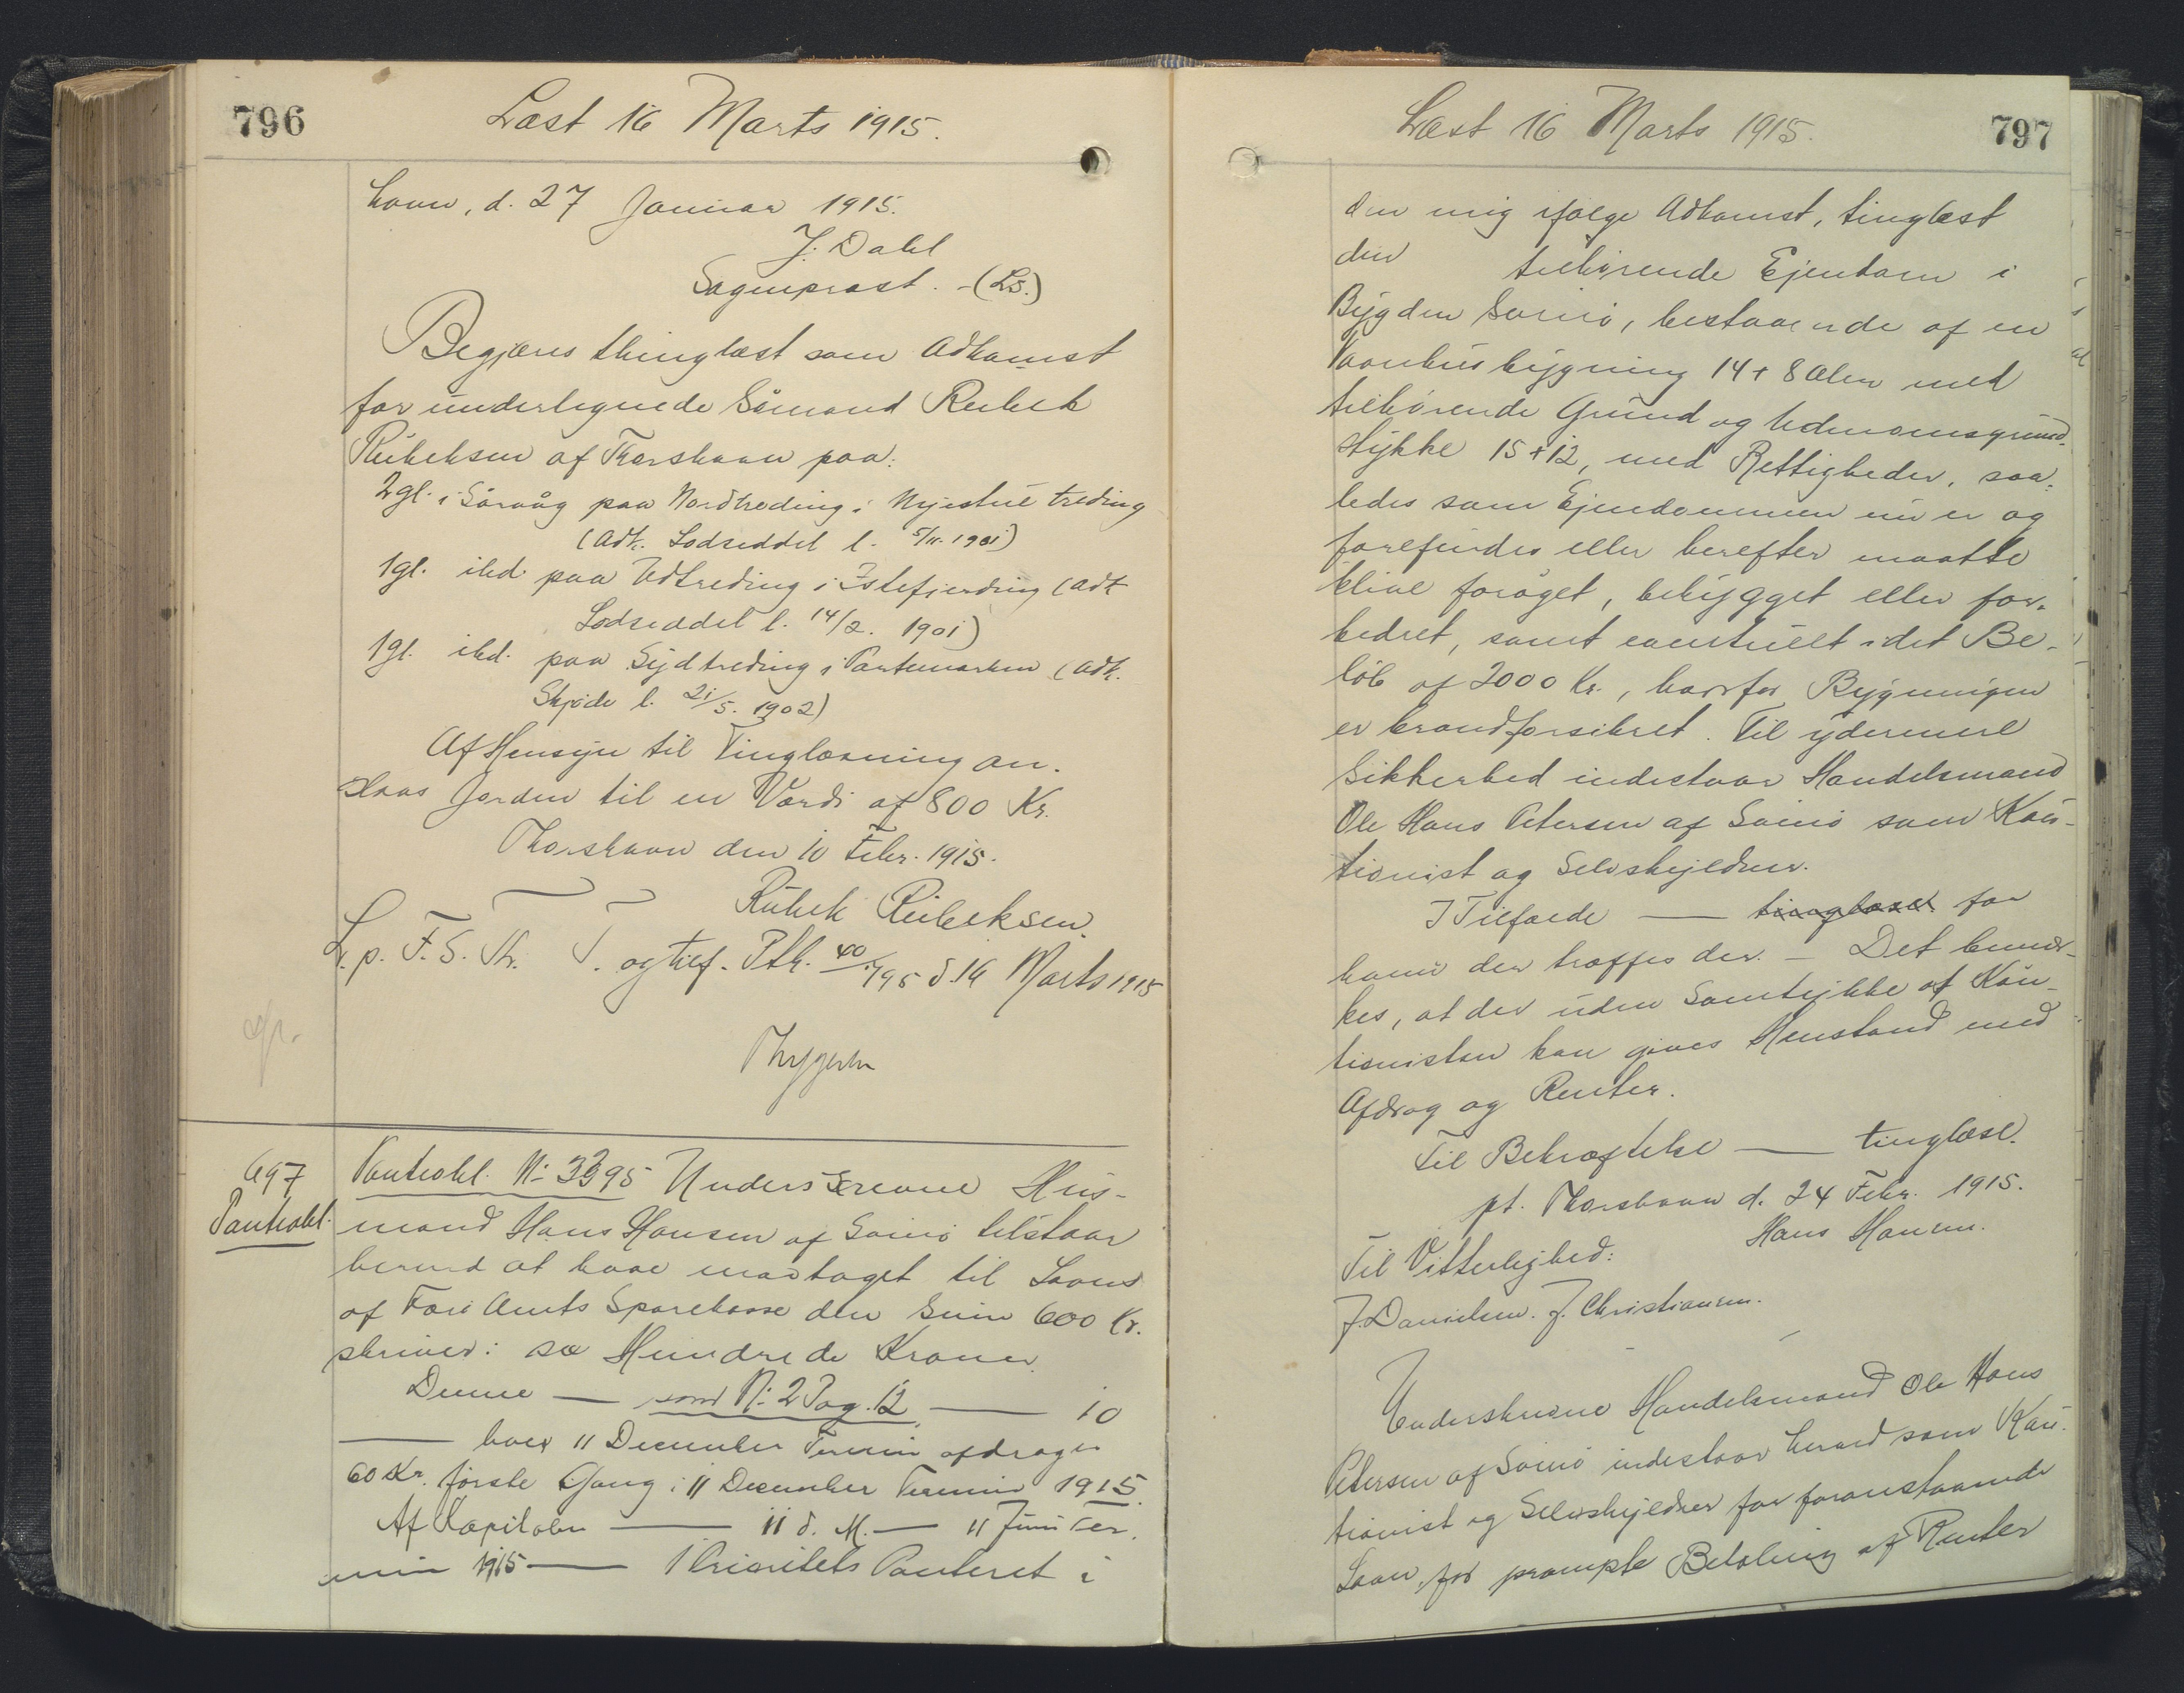 796
Læst 16 Marts 1915.
havn, d. 27 Januar 1915.
J. Dahl
Sognepræst. - (LS.)
Begjæres thinglæst som Adkomst
for undertegnede Sömand Rubek
Rubeksen af Thorshavn paa:
2 gl. i Sörvåg paa Nordtreding i Nyestue treding
(Adk. Lodseddel l. 5/11. 1901)
1 gl. ibd. paa Udtreding i Istefjerding (Adk
Lodseddel l. 14/2. 1901)
1 gl. ibd. paa Sydtreding i Partemarken (Adk.
Skjöde l. 21/5. 1902)
Af Hensyn til Tinglæsning an-
slaas Jorden til en Værdi af 800 Kr.
Thorshavn den 10 Febr. 1915.
Rubek Rubeksen.
L. p. F. S. Th. T. og tilf. Ptk. 40/795 d. 16 Marts 1915
Thygesen
697
Panteobl.
Panteobl. No 3395 Underskrevne Hus-
mand Hans Hansen af Saxö tilstaar
herved at have modtaget til Laans
af Færö Amts Sparekasse den Sum 600 Kr.
skriver: sex Hundrede Kroner.
Denne — som No 2 Pag. 12 — 10
— hver 11 December Termin afdrager
60 Kr. förste Gang i 11 December Termin 1915.
Af Kapitalen — 11 d. M. — 11 Juni Ter-
min 1915 — 1 Prioritets Panteret i
797
Læst 16 Marts 1915.
den mig ifölge Adkomst, tinglæst
den tilhörende Ejendom i
Bygden Saxö, bestaaende af en
Vaanhusbygning 14 + 8 Alen med
tilhörende Grund og Udenomsgrund-
stykke 15 + 12, med Rettigheder, saa-
ledes som Ejendommen nu er og
forefindes eller herefter maatte
blive foröget, bebygget eller for-
bedret, samt eventuelt i det Be-
löb af 2000 Kr., hvorfor Bygningen
er brandforsikret. Til ydermere
Sikkerhed indestaar Handelsmand
Ole Hans Petersen af Saxö som Kau-
tionist og Selvskyldner.
I Tilfælde — tinglæses for
ham der træffes der. — Det bemær-
kes, at der uden Samtykke af Kau-
tionisten kan gives Henstand med
Afdrag og Renter.
Til Bekræftelse — tinglæse.
pt. Thorshavn d. 24 Febr. 1915.
Hans Hansen.
Til Vitterlighed:
J. Danielsen. J. Christiansen.
Underskrevne Handelsmand Ole Hans
Petersen af Saxö indestaar herved som Kau-
tionist og Selvskyldner for foranstaaende
Laan, for prompte Betaling af Renter